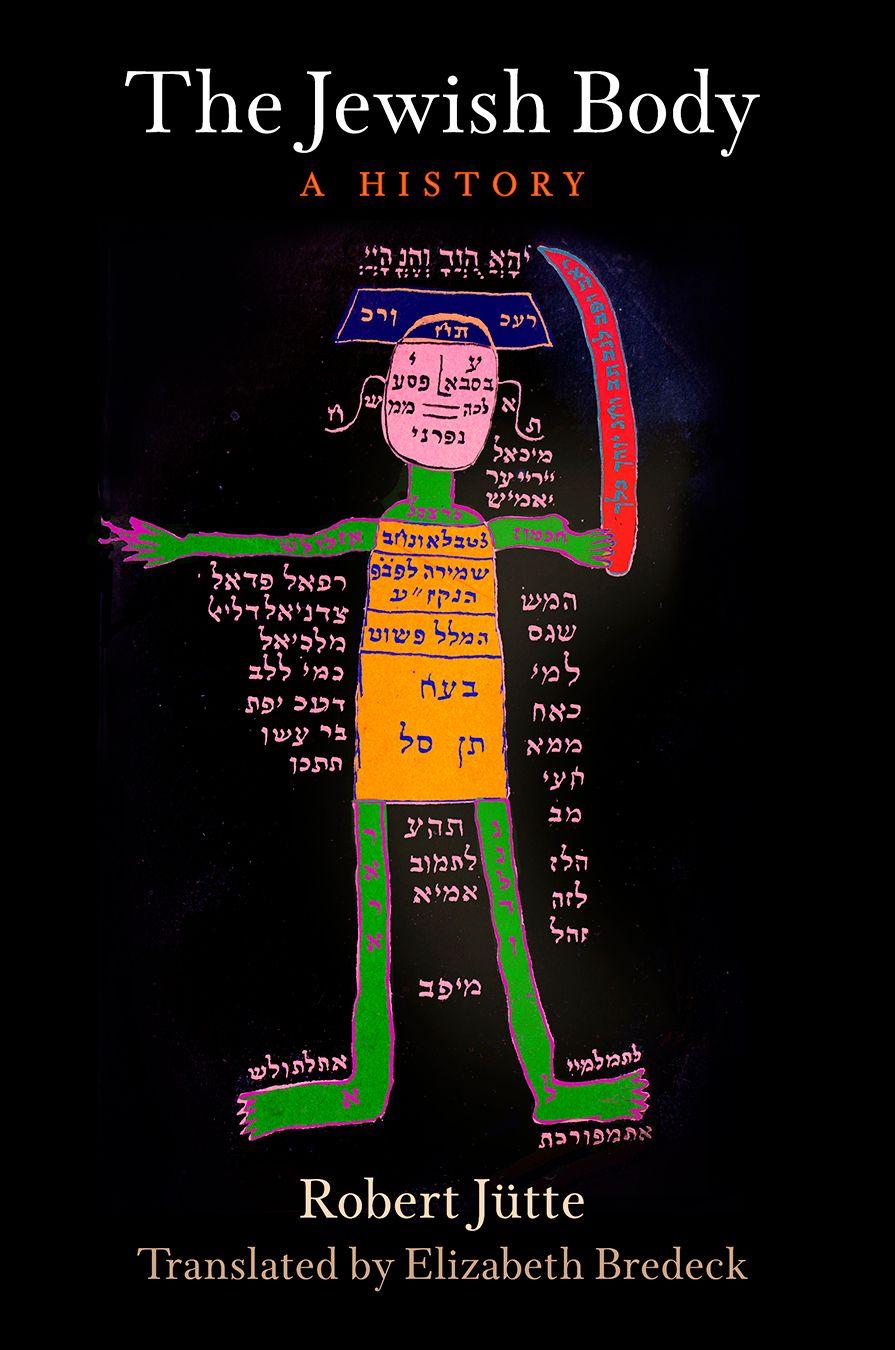 The Jewish Body
A HISTORY
ורכ
רעכ
תיז
י
ע
פסע
בסבא
ממ
לכה
נפרני
ש
א
ת
מיכאל
יאמיש
שמירה לפככפ
הנקז״ע
המלל פשוט
בעח
תן סל
רפאל פדאל
מלכיאל
כמי ללב
דעכ יפת
בר עשו
תתכן
המש
שגס
למי
כאח
ממא
חעי
מב
הלז
לזה
זהל
תהע
לתמוב
אמיא
מיפב
נ
א
נ
א
אתלתולש
לתמלמיי
א
ל
אתמפורכת
Robert Jütte
Translated by Elizabeth Bredeck